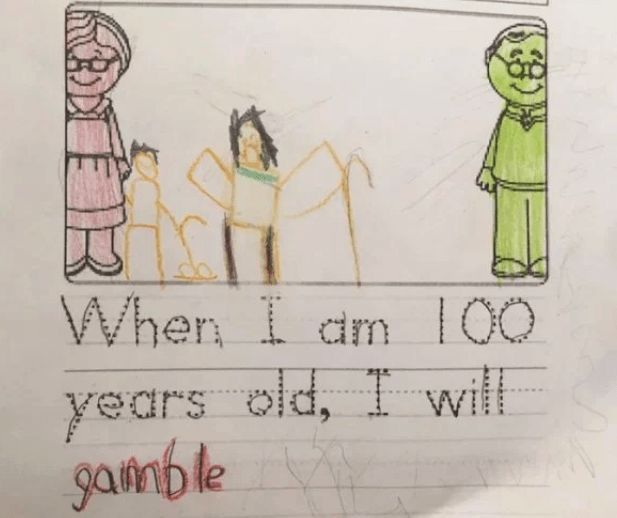 When I am 100
years old, I will
gamble